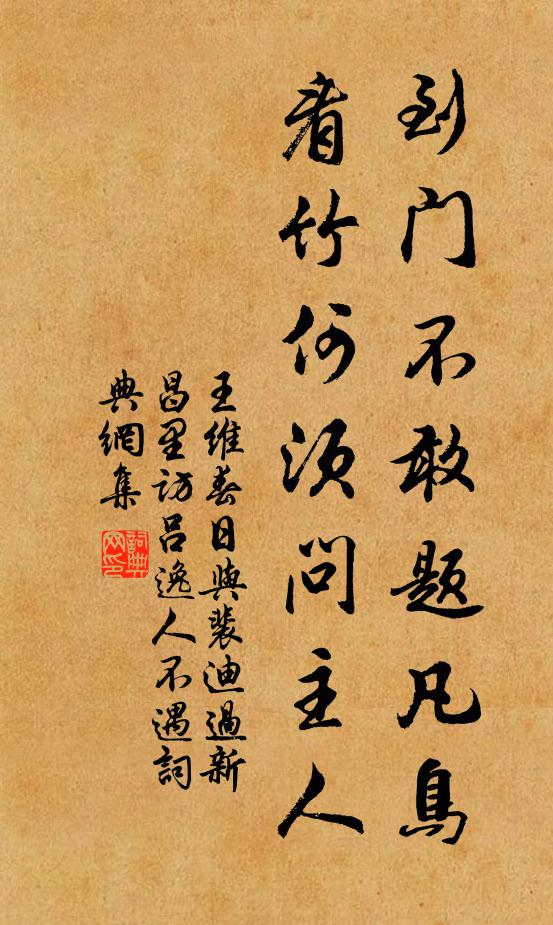 到门不敢题凡鸟
看竹何须问主人
王维春日与裴迪過新
昌里訪吕逸人不遇詞
典網集
詞典网印